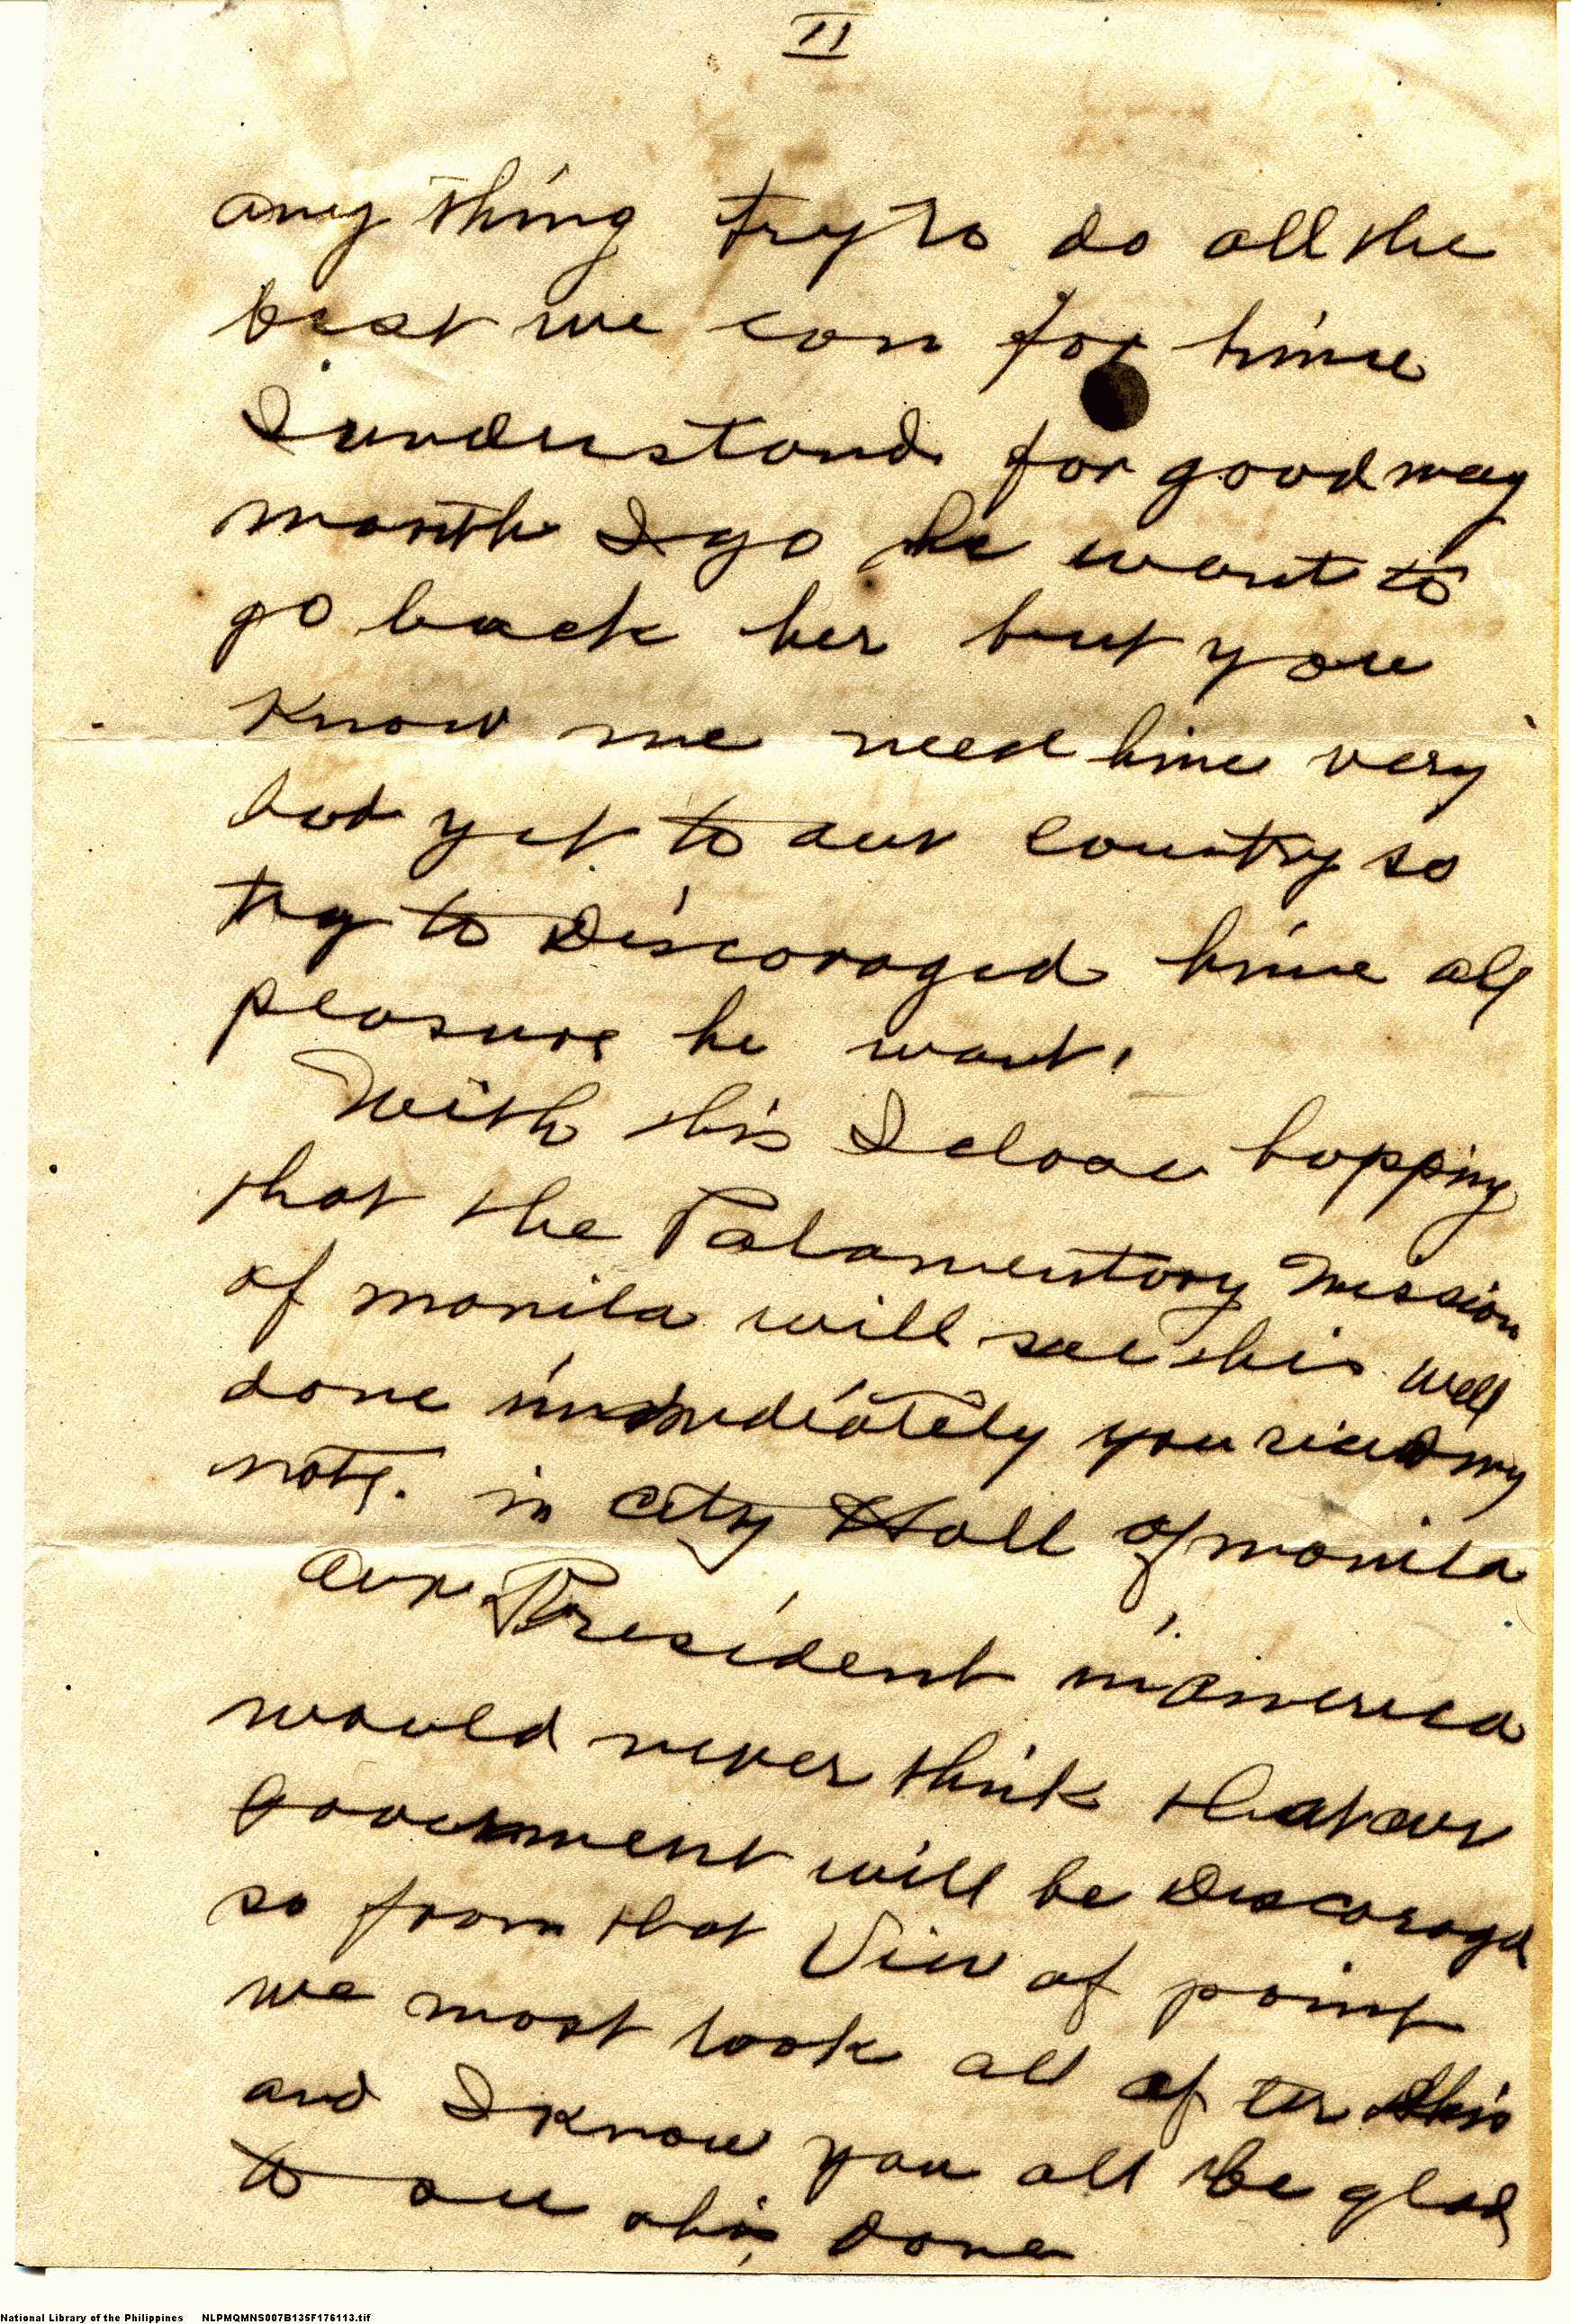 II
any thing try to do all the
best we can for hime
I understand for good may
month I go he want to
go back her but you
know me need hime very
bad yet to our country so
try to Discoraged hime all
pleasure he want.
With this I close hopping
that the Palamentory mission
of monila will see this well
done immediately you my
note. in City Hall of monila
Our President in America
would never think that our
government will be Discoraged
so from that View of point
we most look all af ter this
and I know you all be glad
to see this done
National Library of the Philippines NLPMQMNS007B135F176113.tif